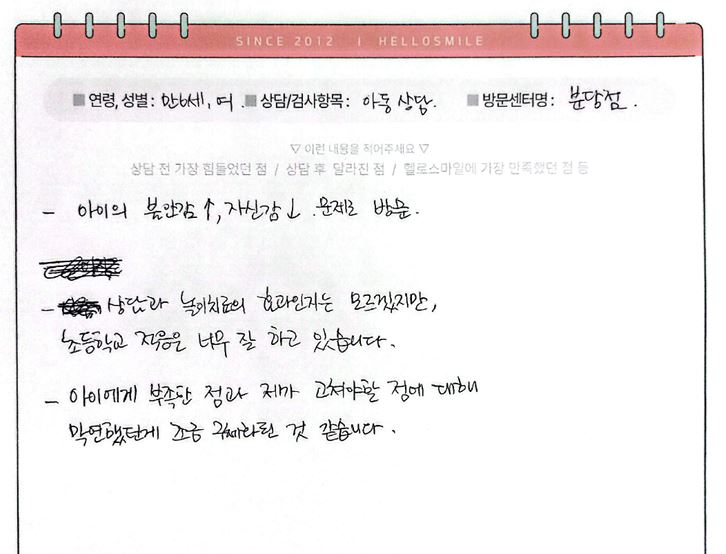 SINCE 2012 | HELLOSMILE
■ 연령, 성별 : 만6세, 여 ■ 상담/검사항목 : 아동상담. ■ 방문센터명 : 분당점.
▽ 이런 내용을 적어주세요 ▽
상담 전 가장 힘들었던 점 / 상담 후 달라진 점 / 헬로스마일에 가장 만족했던 점 등
- 아이의 불안감↑, 자신감↓ 문제로 방문.
- 상담과 놀이치료의 효과인지는 모르겠지만,
초등학교 적응은 너무 잘 하고 있습니다.
- 아이에게 부족한 점과 제가 고쳐야할 점에 대해
막연했던게 조금 구체화된 것 같습니다.